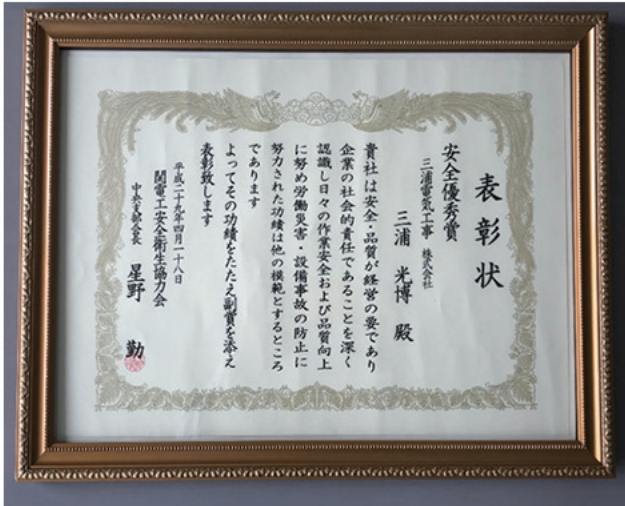 表彰状
安全優秀賞
三浦電気工事 株式会社
三浦 光博 殿
貴社は安全・品質が経営の要であり
企業の社会的責任であることを深く
認識し日々の作業安全および品質向上
に努め労働災害・設備事故の防止に
努力された功績は他の模範とするところ
であります
よってその功績をたたえ副賞を添え
表彰致します
平成二十九年四月二十八日
関電工安全衛生協力会
中央支部会長 星野 勤